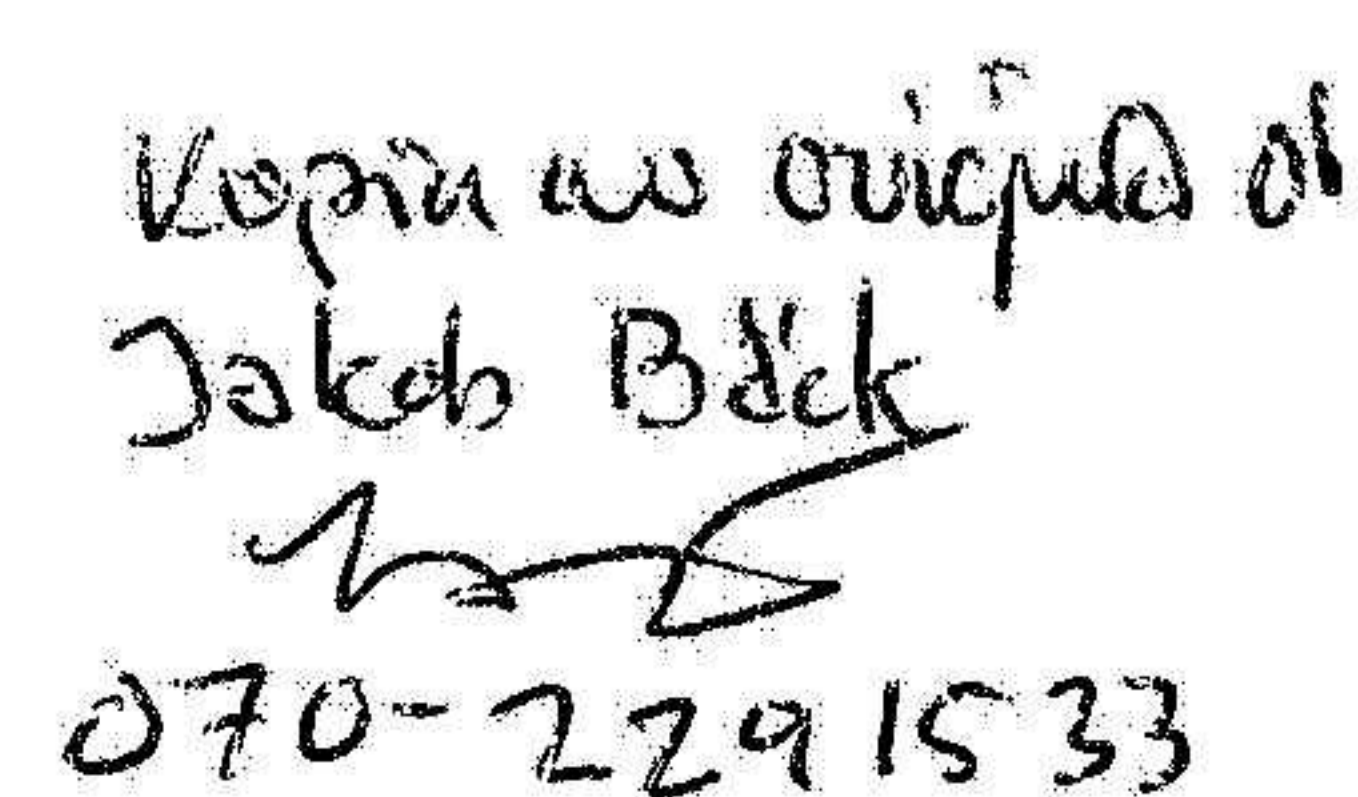 Kopia av original
Jakob Bäck
070-229 15 33